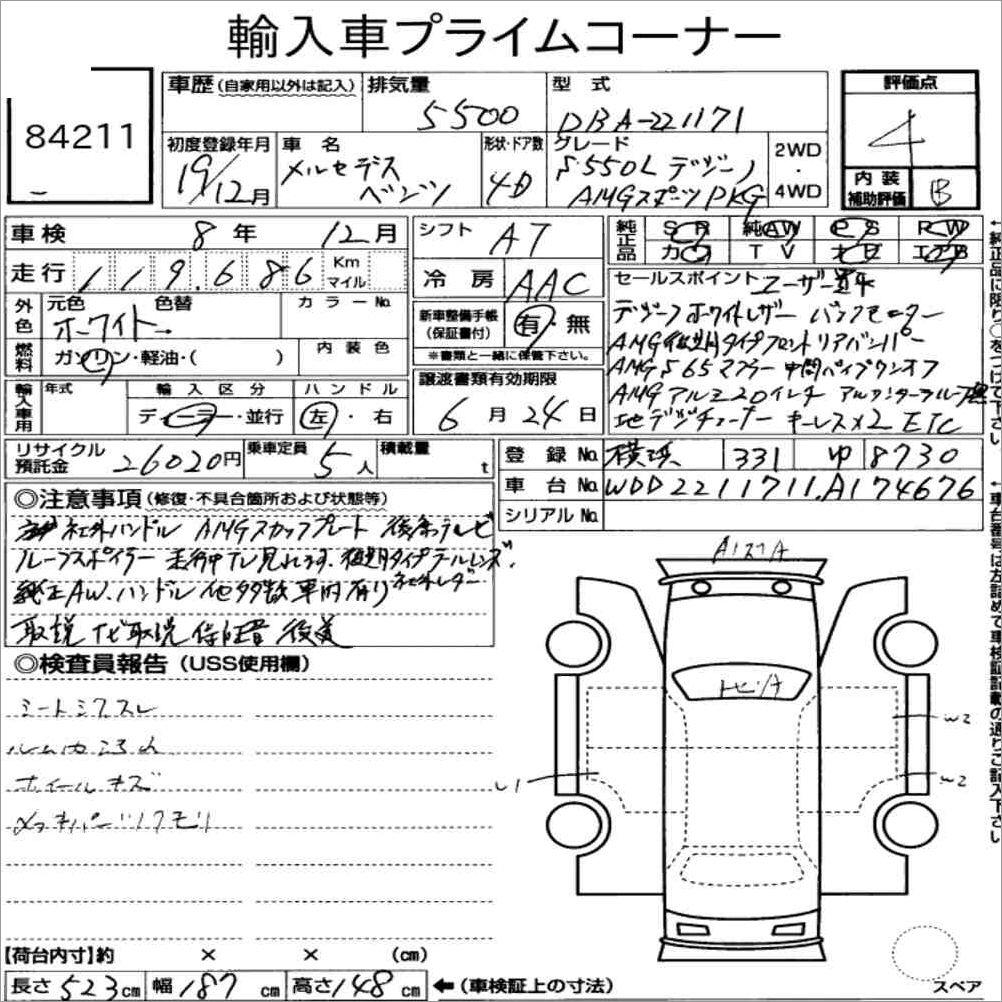 輸入車プライムコーナー
84211
車歴(自家用以外は記入)
排気量 5500
型式 DBA-221171
評価点 4
初度登録年月 19/12月
車名 メルセデスベンツ
形状・ドア数 4D
グレード S550L デジーノ
AMGスポーツPKG
2WD・4WD
内装補助評価 B
車検 8年 12月
シフト AT
純正品 SR 純AW PS PW
カワ TV ナビ エアB
走行 119,686 Km マイル
冷房 AAC
セールスポイント ユーザー買取
外色 元色 色替 カラーNo.
ホワイト
新車整備手帳(保証書付) 有・無
※書類と一緒に保管下さい。
デジーノホワイトレザー パノラマ
AMG後期タイプフロントリアバンパー
燃料 ガソリン・軽油・( )
内装色
AMG S65マフラー 中間パイプワンオフ
輸入車用 年式 輸入区分 ハンドル
ディーラー・並行 左・右
譲渡書類有効期限
6月24日
AMGアルミ20インチ
地デジチューナー キーレス×2 ETC
リサイクル預託金 26020円
乗車定員 5人
積載量 t
登録No. 横浜 331 ゆ 8730
車台No. WDD2211711A174676
シリアルNo.
◎注意事項(修復・不具合箇所および状態等)
社外ハンドル AMGスカッフプレート 後席テレビ
ルーフスポイラー 走行中TV見れます。後期タイプテールレンズ。
純正AW.ハンドル他多数車内有り 社外レーダー
取説 ナビ取説 保証書 後送
◎検査員報告(USS使用欄)
シートシワスレ
ルーム内コゲ
ホイールキズ
メッキパーツクモリ
A1スリA
トビA
W2
W2
U1
【荷台内寸】約 × × (cm)
長さ523cm 幅187cm 高さ148cm ←(車検証上の寸法)
スペア
←純正品に限り○をつけて下さい
←車台番号は左詰めで車検証記載の通りご記入下さい